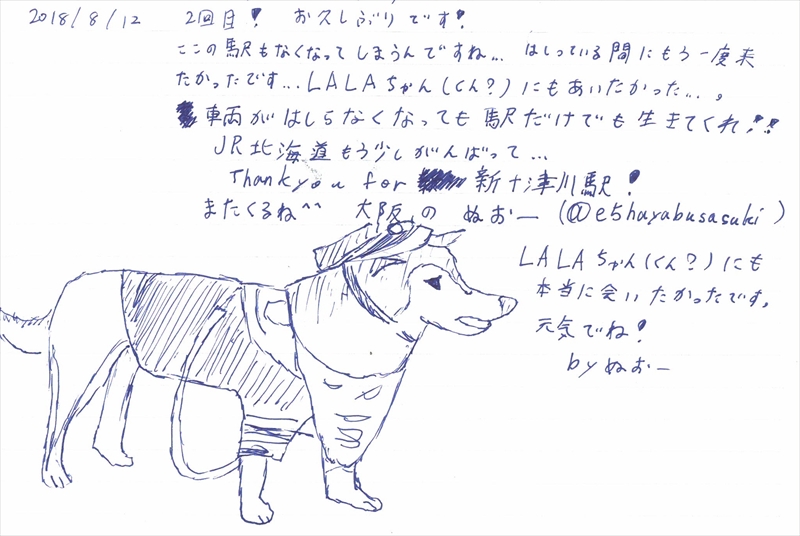 2018/8/12 2回目! お久しぶりです!
ここの駅もなくなってしまうんですね... はしっている間にもう一度来
たかったです...LALAちゃん(くん?)にもあいたかった...。
車両がはしらなくなっても駅だけでも生きてくれ!!
JR北海道もう少しがんばって...
Thank you for 新十津川駅!
またくるね^^ 大阪のぬおー(@e5hayabusasuki)
LALAちゃん(くん?)にも
本当に会いたかったです。
元気でね!
byぬおー